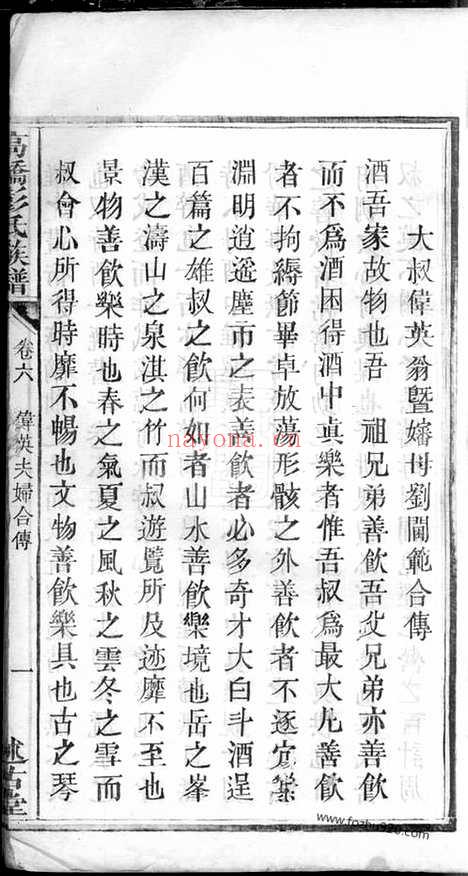 大叔偉英翁暨嬸母劉閫範合傳
酒吾家故物也吾 祖兄弟善飲吾父兄弟亦善飲
而不爲酒困得酒中眞樂者惟吾叔爲最大凡善飲
者不拘縟節畢卓放蕩形骸之外善飲者不逐
淵明逍遥塵市之表善飲者必多奇才大白斗酒逞
百篇之雄叔之飲何如者山水善飲樂境也岳之峯
漢之濤山之泉淇之竹而叔遊覽所及迹靡不至也
景物善飲樂時也春之氣夏之風秋之雲冬之雪而
叔會心所得時靡不暢也文物善飲樂具也古之琴
高橋彭氏族譜
卷六 偉英夫婦合傳
一
述古堂
nayona.com
www.fozhu920.com